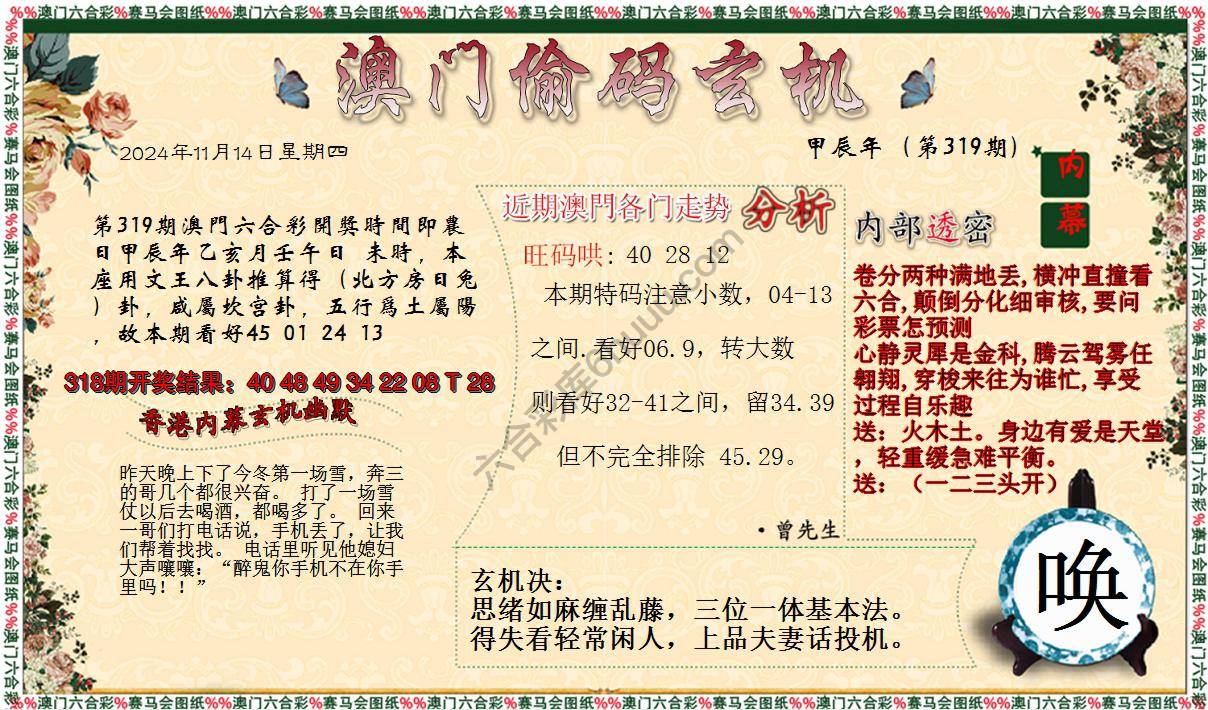 %%澳门六合彩%赛马会图纸%%澳门六合彩%赛马会图纸%%澳门六合彩%赛马会图纸%%澳门六合彩%赛马会图纸%%澳门六合彩%赛马会图纸%%澳门六合彩%赛马会图纸
澳门偷码玄机
2024年11月14日星期四
甲辰年（第319期）
内幕
第319期澳門六合彩開獎時間即農
日甲辰年乙亥月壬午日 未時，本
座用文王八卦推算得（北方房日兔
）卦，咸屬坎宫卦，五行爲土屬陽
，故本期看好45 01 24 13
318期开奖结果：40 48 49 34 22 08 T 28
香港内幕玄机幽默
昨天晚上下了今冬第一场雪，奔三
的哥几个都很兴奋。 打了一场雪
仗以后去喝酒，都喝多了。 回来
一哥们打电话说，手机丢了，让我
们帮着找找。 电话里听见他媳妇
大声嚷嚷：“醉鬼你手机不在你手
里吗！！”
近期澳門各门走势 分析
旺码哄：40 28 12
本期特码注意小数，04-13
之间.看好06.9，转大数
则看好32-41之间，留34.39
但不完全排除 45.29。
·曾先生
内部透密
卷分两种满地丢,横冲直撞看
六合,颠倒分化细审核,要问
彩票怎预测
心静灵犀是金科,腾云驾雾任
翱翔,穿梭来往为谁忙,享受
过程自乐趣
送：火木土。身边有爱是天堂
，轻重缓急难平衡。
送：（一二三头开）
玄机决：
思绪如麻缠乱藤，三位一体基本法。
得失看轻常闲人，上品夫妻话投机。
唤
%%澳门六合彩%赛马会图纸%%澳门六合彩%赛马会图纸%%澳门六合彩%赛马会图纸%%澳门六合彩%赛马会图纸%%澳门六合彩%赛马会图纸%%澳门六合彩%赛马会图纸